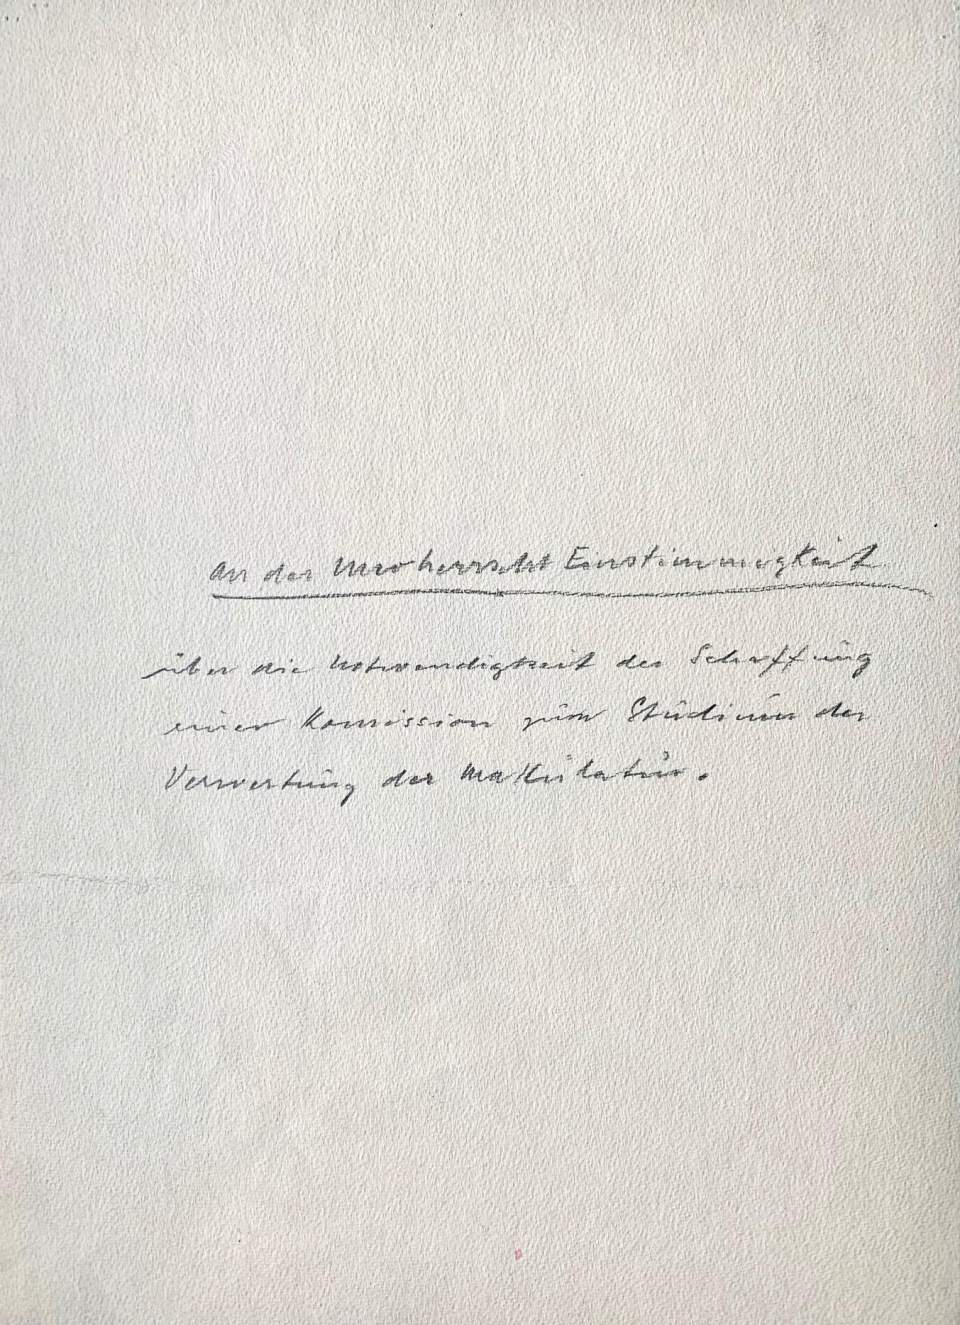 an der Uno herrscht Einstimmigkeit
über die Notwendigkeit der Schaffung
einer Komission zum Studium der
Verwertung der Makulatur.